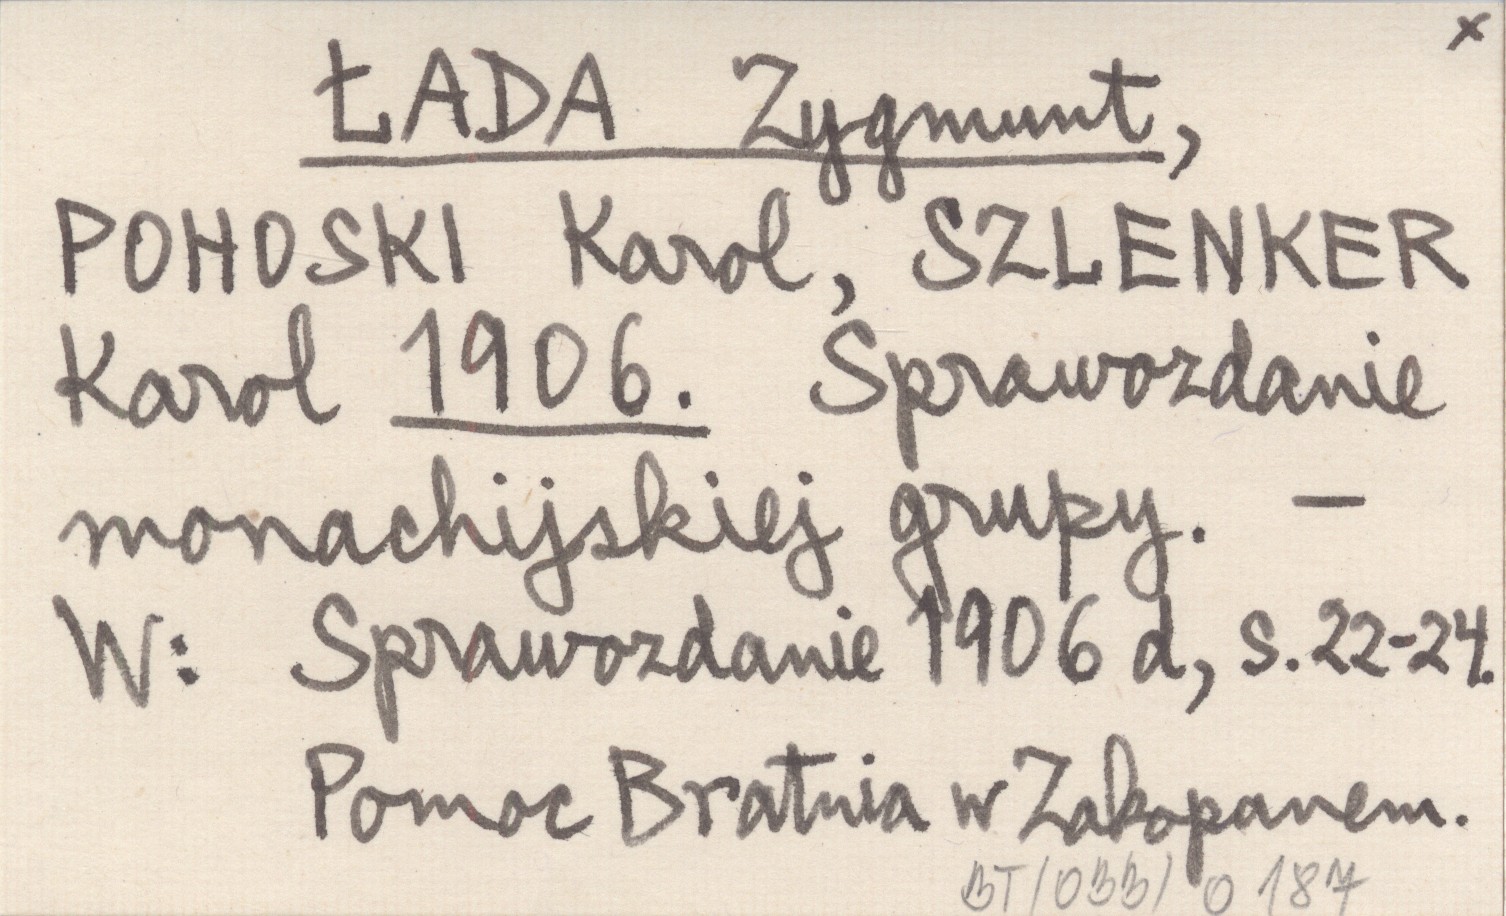 x
ŁADA Zygmunt,
POHOSKI Karol, SZLENKER
Karol 1906. Sprawozdanie
monachijskiej grupy. –
W: Sprawozdanie 1906 d, s. 22-24.
Pomoc Bratnia w Zakopanem.
BT/OBB/ O 187